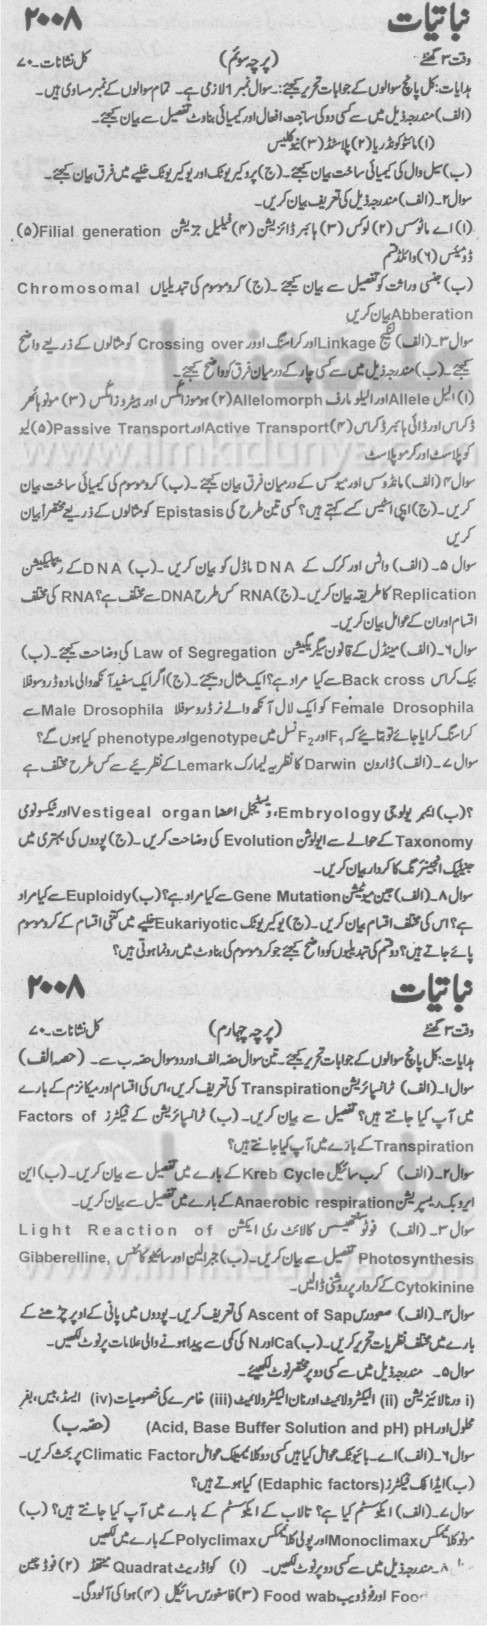 نباتیات ۲۰۰۸
وقت ۳ گھنٹے (پرچہ سوئم) کل نشانات۔۷۰
ہدایات: کل پانچ سوالوں کے جوابات تحریر کیجئے:۔ سوال نمبر 1 لازمی ہے۔ تمام سوالوں کے نمبر مساوی ہیں۔
(الف) مندرجہ ذیل میں سے کسی دو کی ساجت افعال اور کیمیائی بناوٹ تفصیل سے بیان کیجئے۔
(۱) مائٹو کونڈریا (۲) پلاسٹڈ (۳) نیوکلیس
(ب) سیل وال کی کیمیائی ساخت بیان کیجئے۔ (ج) پروکیریوٹک اور یوکیریوٹک خلیے میں فرق بیان کیجئے۔
سوال ۲۔ (الف) مندرجہ ذیل کی تعریف بیان کریں۔
(۱) اے مائوسس (۲) لوکس (۳) ہائبرڈائزیشن (۴) فیلیل جزیشن Filial generation (۵)
ڈومیننس (۶) وائلڈ قسم
(ب) جنسی وراثت کو تفصیل سے بیان کیجئے۔ (ج) کروموسوم کی تبدیلیاں Chromosomal
Abberation بیان کریں
سوال ۳۔ (الف) لنکیج Linkage اور کراسنگ اوور Crossing over کو مثالوں کے ذریعے واضح
کیجئے۔ (ب) مندرجہ ذیل میں سے کسی چار کے درمیان فرق کو واضح کیجئے۔
(۱) الیل Allele اور الیلو مارف Allelomorph (۲) ہوموزائگس اور ہیٹروزائگس (۳) مونو ہائبر
ڈکراس اور ڈائی ہائبرڈ کراس (۴) Active Transport اور Passive Transport (۵) لیو
کو پلاسٹ اور کرمو پلاسٹ
سوال ۴ (الف) مائٹوسس اور میوسس کے درمیان فرق بیان کیجئے۔ (ب) کروموسوم کی کیمیائی ساخت بیان
کریں۔ (ج) اپی اسٹیس کسے کہتے ہیں؟ کسی تین طرح کی Epistasis کو مثالوں کے ذریعے مختصراً بیان
کریں
سوال ۵۔ (الف) واٹسن اور کرک کے DNA ماڈل کو بیان کریں۔ (ب) DNA کے ریپلیکیشن
Replication کا طریقہ بیان کریں۔ (ج) RNA کس طرح DNA سے مختلف ہے؟ RNA کی مختلف
اقسام اور ان کے عوامل بیان کریں۔
سوال ۶۔ (الف) مینڈل کے قانون سیگریگیشن Law of Segregation کی وضاحت کیجئے۔ (ب)
بیک کراس Back cross سے کیا مراد ہے؟ ایک مثال دیجئے۔ (ج) اگر ایک سفید آنکھ والی مادہ ڈروسوفلا
Female Drosophila کو ایک لال آنکھ والے نر ڈروسوفلا Male Drosophila سے
کراسنگ کرایا جائے تو بتائیے کہ F1 اور F2 نسل میں genotype اور phenotype کیا ہوں گے؟
سوال ۷۔ (الف) ڈارون Darwin کا نظریہ لیمارک Lemark کے نظریئے سے کس طرح مختلف ہے
؟ (ب) ایمبریولوجی Embryology، ویسٹیجل اعضا Vestigeal organ اور ٹیکسونومی
Taxonomy کے حوالے سے ایولوشن Evolution کی وضاحت کریں۔ (ج) پودوں کی بہتری میں
جنیٹیک انجینئرنگ کا کردار بیان کریں۔
سوال ۸۔ (الف) جین میوٹیشن Gene Mutation سے کیا مراد ہے؟ (ب) Euploidy سے کیا مراد
ہے؟ اس کی مختلف اقسام بیان کریں۔ (ج) یوکیریوٹک Eukariyotic خلیے میں کتنی اقسام کے کروموسوم
پائے جاتے ہیں؟ دو قسم کی تبدیلیوں کو واضح کیجئے جو کروموسوم کی بناوٹ میں رونما ہوتی ہیں؟
نباتیات ۲۰۰۸
وقت ۳ گھنٹے (پرچہ چہارم) کل نشانات۔۷۰
ہدایات: کل پانچ سوالوں کے جوابات تحریر کیجئے۔ تین سوال حصہ الف اور دو سوال حصہ ب سے۔ (حصہ الف)
سوال ۱۔ (الف) ٹرانسپائریشن Transpiration کی تعریف کریں، اس کی اقسام اور میکانزم کے بارے
میں آپ کیا جانتے ہیں؟ تفصیل سے بیان کریں۔ (ب) ٹرانسپائریشن کے فیکٹرز Factors of
Transpiration کے بارے میں آپ کیا جانتے ہیں؟
سوال ۲۔ (الف) کرب سائیکل Kreb Cycle کے بارے میں تفصیل سے بیان کریں۔ (ب) این
ایروبک ریسپریشن Anaerobic respiration کے بارے میں تفصیل سے بیان کریں۔
سوال ۳۔ (الف) فوٹوسنتھیسس کا لائٹ ری ایکشن Light Reaction of
Photosynthesis تفصیل سے بیان کریں۔ (ب) جبرالین اور سائیٹوکائنس Gibberelline,
Cytokinine کے کردار پر روشنی ڈالیں۔
سوال ۴۔ (الف) صعودرس Ascent of Sap کی تعریف کریں۔ پودوں میں پانی کے اوپر چڑھنے کے
بارے میں مختلف نظریات تحریر کریں۔ (ب) Ca اور N کی کمی سے پیدا ہونے والی علامات پر نوٹ لکھیں۔
سوال ۵۔ مندرجہ ذیل میں سے کسی دو پر مختصر نوٹ لکھیئے۔
(i ورنالائزیشن (ii) الیکٹرولائیٹ اور نان الیکٹرولائیٹ (iii) خامرے کی خصوصیات (iv) ایسڈ، بیس، بفر
محلول اور pH (Acid, Base Buffer Solution and pH) (حصہ ب)
سوال ۶۔ (الف) اے۔ بائیوٹک عوامل کیا ہیں کسی دو کلائمیٹک عوامل Climatic Factor پر بحث کریں۔
(ب) ایڈافک فیکٹرز (Edaphic factors) کیا ہوتے ہیں؟
سوال ۷۔ (الف) ایکوسٹم کیا ہے؟ تالاب کے ایکوسٹم کے بارے میں آپ کیا جانتے ہیں؟ (ب)
مونوکلائمیکس Monoclimax اور پولی کلائمیکس Polyclimax کے بارے میں لکھیں
۸۔ مندرجہ ذیل میں سے کسی دو پر نوٹ لکھیں۔ (۱) کواڈریٹ Quadrat میتھڈ (۲) فوڈ چین
Food اور فوڈ ویب Food wab (۳) فاسفورس سائیکل (۴) ہوا کی آلودگی۔
www.ilmkidunya.com
www.ilmkidunya.com